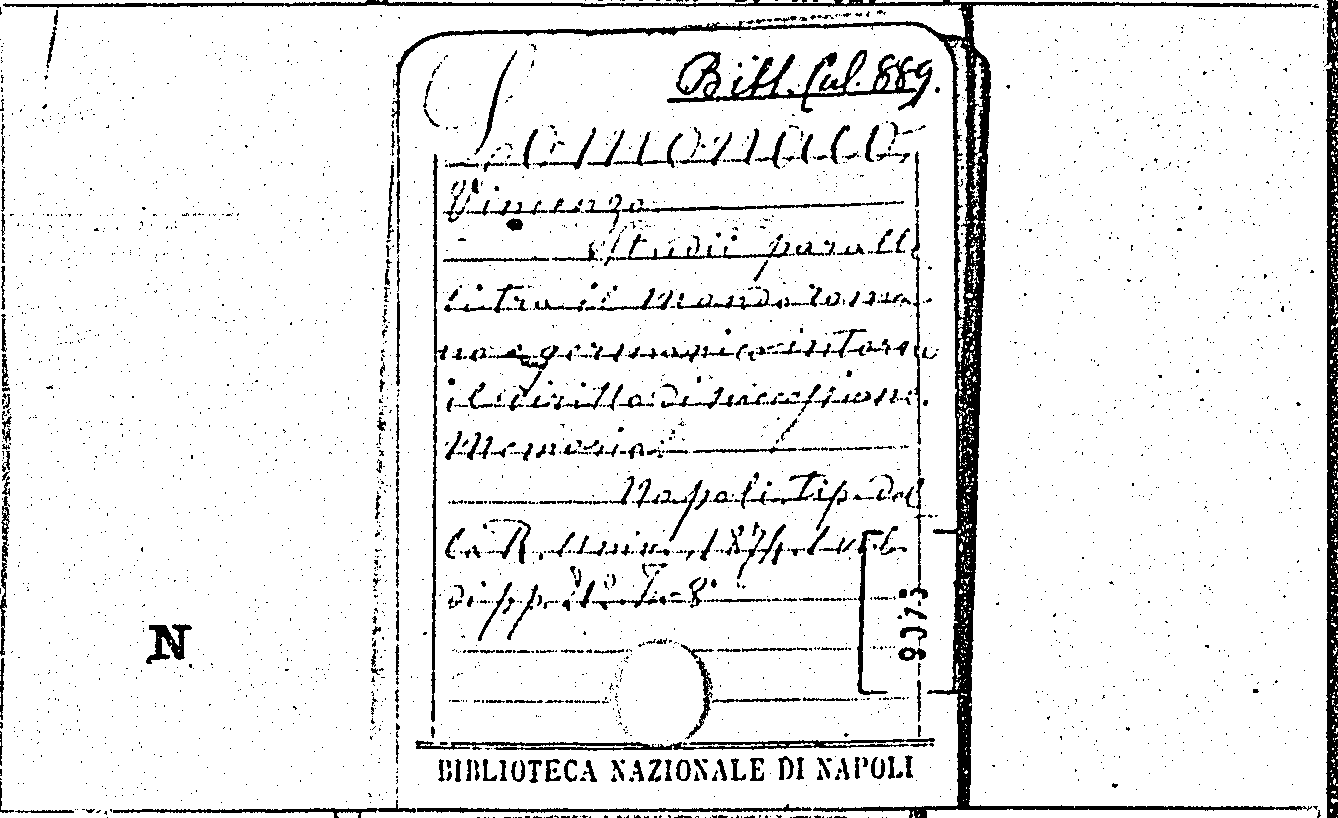 Bibl. Cal. 889.
Lomonaco,
Vincenzo
Studii paralle
li tra il mondo roma-
no e germanico intorno
il diritto di successione.
Memoria
Napoli, Tip. del
la R. Univ., 1874, 1 vol.
di pp. in-8°
9073
N
BIBLIOTECA NAZIONALE DI NAPOLI